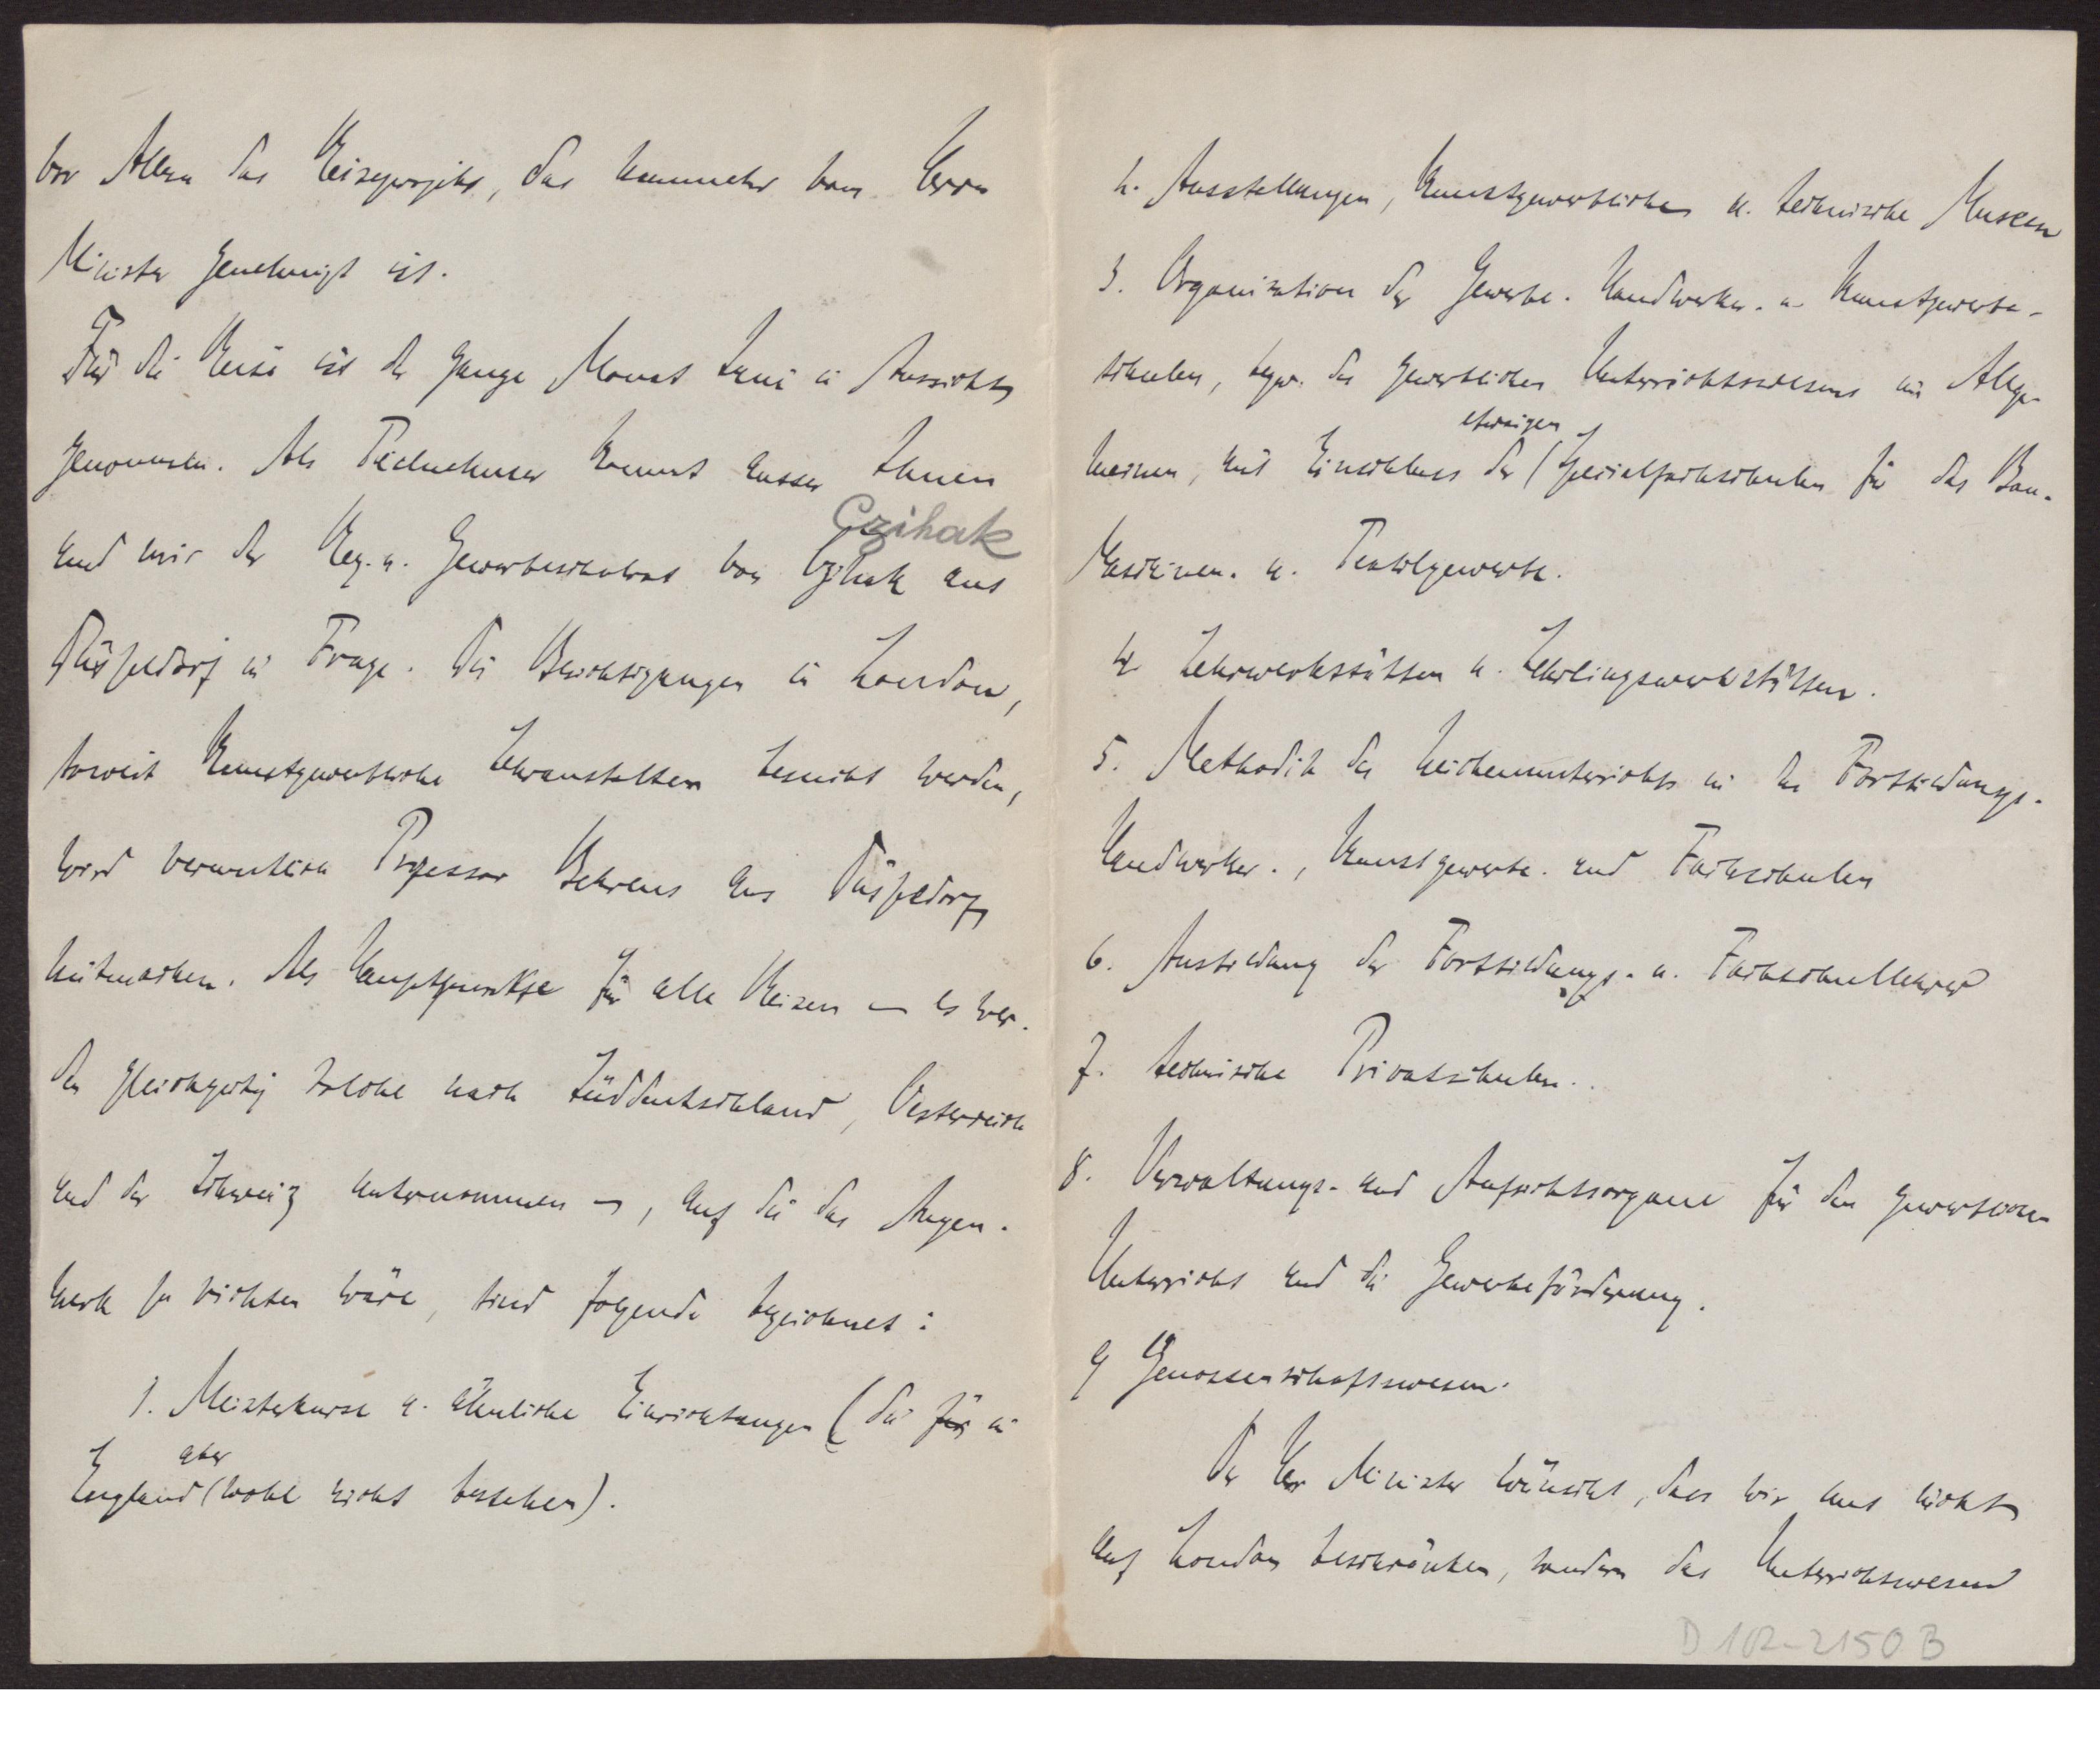 vor Allem das Reiseprojekt, das nunmehr vom Herrn
Minister genehmigt ist.
Für die Reise ist der ganze Monat Juni in Aussicht
genommen. Als Teilnehmer kommt ausser Ihnen
Czihak
und mir der Reg. u. Gewerbeschulrat von Czihak aus
Düsseldorf in Frage. Die Besichtigungen in London,
soweit kunstgewerbliche Lehranstalten besucht werden,
wird vermutlich Professor Behrens aus Düsseldorf
mitmachen. Als Hauptpunkte für alle Reisen – es wer-
den gleichzeitig solche nach Süddeutschland, Oesterreich
und der Schweiz unternommen –, auf die das Augen-
merk zu richten wäre, sind folgende bezeichnet:
1. Meisterkurse u. ähnliche Einrichtungen (die für in
aber
England (wohl nicht bestehen).
2. Ausstellungen, kunstgewerbliche u. technische Museen
3. Organisation der Gewerbe- Handwerker- u Kunstgewerbe-
schulen, bezw. des gewerblichen Unterrichtswesens im Allge-
etwaigen
meinen, mit Einschluss der (Spezialfachschulen für das Bau-
Maschinen- u. Textilgewerbe.
4 Lehrwerkstätten u. Lehrlingswerkstätten.
5. Methodik des Zeichenunterrichts in den Fortbildungs-
Handwerker-, Kunstgewerbe- und Fachschulen
6. Ausbildung der Fortbildungs- u. Fachschullehrer
7. technische Privatschulen.
8. Verwaltungs- und Aufsichtsorgane für den gewerblichen
Unterricht und die Gewerbeförderung.
9 Genossenschaftswesen.
Der Herr Minister wünscht, dass wir uns nicht
auf London beschränken, sondern das Unterrichtswesen
D 102-2150 B